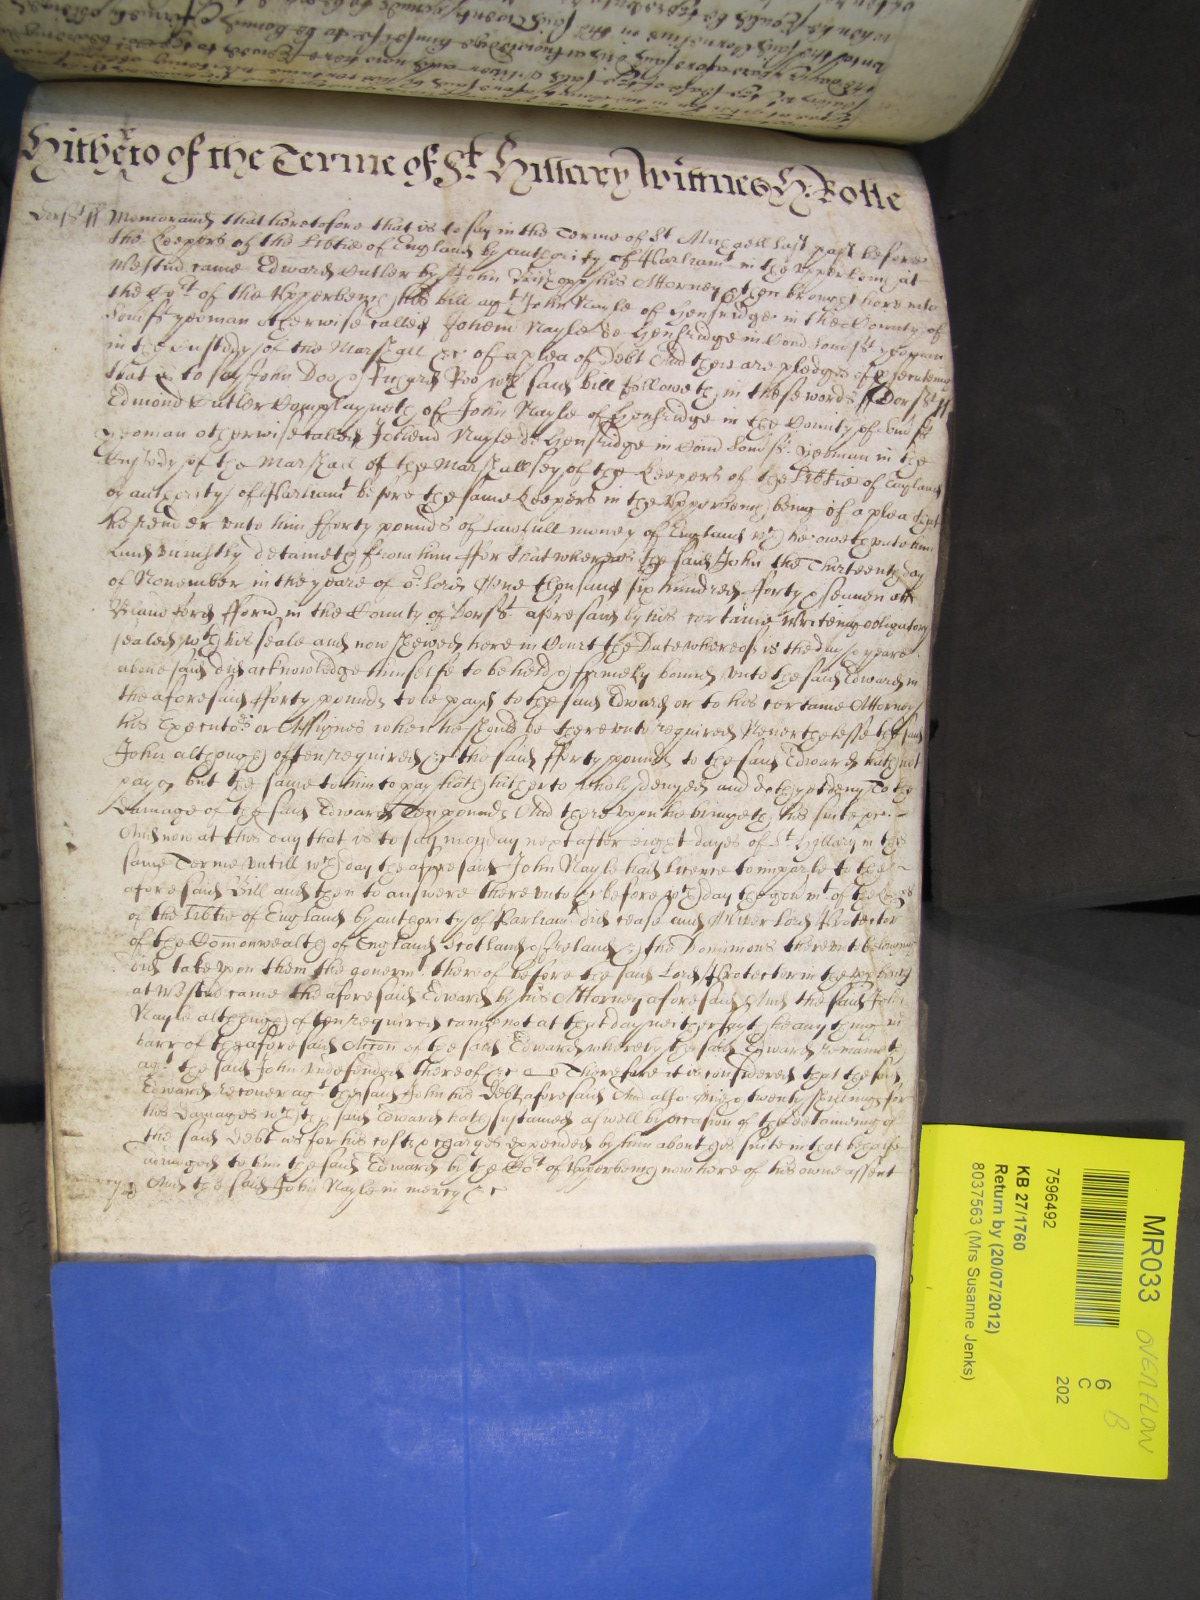 Hitherto of the Terme of St. Hillary Wittnes H: Rolle
Dorst ss Memorand that heretofore that is to say in the Terme of St Michaell last past before
the Keepers of the Libtie of England by authority of Parliamt in the upper bench at
Westm came Edward Butler by John his Attorney & then brought here into
the Cort of the upper bench his bill agt John Nayle of Hensridge in the County of
Somst yeoman otherwise called Johem Nayle de Hensridge in Com Somst yeoman
in the custody of the Marshall &c of a plea of Debt And there are pledges of prosecuting
that is to say John Doo & Richard Roo wch said bill followeth in these words ss Dorst ss
Edmond Butler Complayneth of John Nayle of Hensridge in the County of Somst
yeoman otherwise called Johem Nayle de Hensridge in Com Somst yeoman in the
Custody of the Marshall of the Marshallsey of the Keepers of the Libtie of England
by authority of Parliamt before the same Keepers in the upperbench being of a plea that
he render unto him fforty pounds of lawfull money of England wch he oweth unto him
and uniustly detaineth from him ffor that whereas the said John the Thirteenth day
of November in the yeare of or Lord One thousand six hundred fforty & seaven att
Blandford fforū in the County of Dorst aforesaid by his certaine Writeing obligatory
sealed wth his seale and now shewed here in Court the Date whereof is the day & yeare
above said did acknowledge himselfe to be held & firmely bound unto the said Edward in
the aforesaid fforty pounds to be payd to the said Edward or to his certaine Attorney
his Executors or Assignes when he should be thereunto required Neverthelesse the said
John although often required &c the said fforty pounds to the said Edward hath not
payd but the same to him to pay hath hitherto wholy denyed and doth yet deny To the
damage of the said Edward Ten pounds And thereupon he bringeth his suite &c
And now at this day that is to say monday next after eight dayes of St Hillary in this
same Terme untill wch day the aforesaid John Nayle had licence to imparle to the
aforesaid Bill and then to answere thereunto &c before wch day the govmt of the Keeps
of the Libtie of England by authority of Parliamt did cease and Oliver Lord Protector
of the Comonwealth of England Scotland & Ireland & the Dominions thereunto belonging
did take upon them the govermt thereof before the said Lord Protector in the upp bench
at Westm came the aforesaid Edward by his Attorney aforesaid And the said John
Nayle although often required came not at that day neither sayth he any thing in
barr of the aforesaid Accon of the said Edward whereby the said Edward remaineth
agt the said John undefended thereof &c Therefore it is considered that the said
Edward recover agt the said John his Debt aforesaid And also twenty shillings for
his damages wch the said Edward hath sustained aswell by occasion of the detaineing of
the said debt as for his costs & charges expended by him about his suite in that behalfe
adiudged to him the said Edward by the Cort of upperbench now here of his owne assent
And the said John Nayle in mercy &c
MR033
OVERFLOW
B
6
C
202
7596492
KB 27/1760
Return by (20/07/2012)
8037563 (Mrs Susanne Jenks)